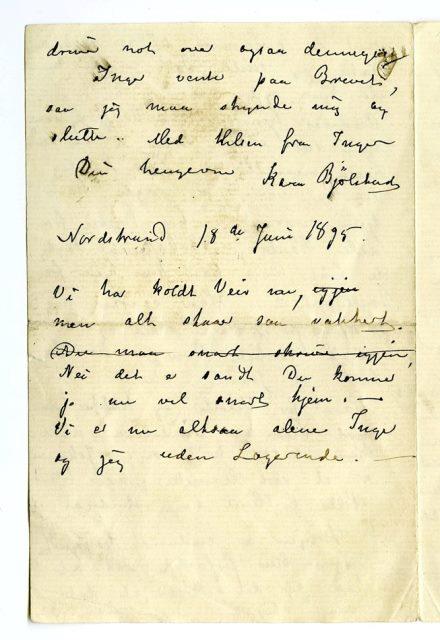 driver nok over ogsaa dennegang
Inger vente paa Brevet,
saa jeg maa skynde mig og
slutte. Med Hilsen fra Inger
Din hengivne Kara Bjølstad
Nordstrand 18 de Juni 1895.
Vi har koldt Veir nu, igjen
men alt staar saa vakkert.
Du maa snart skrive igjen,
Nei det e sandt Du kommer
jo nu vel snart hjem. —
Vi er nu altsaa alene Inger
og jeg uden Lærerinde. —